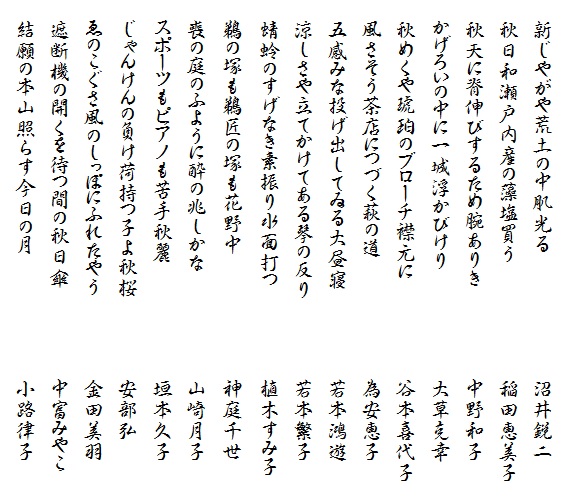 新じやがや荒土の中肌光る 沼井鋭二
秋日和瀬戸内産の藻塩買う 稲田恵美子
秋天に脊伸びするため腕ありき 中野和子
かげろいの中に一城浮かびけり 大草克幸
秋めくや琥珀のブローチ襟元に 谷本喜代子
風さそう茶店につづく萩の道 為安恵子
五感みな投げ出してゐる大昼寝 若本鴻遊
涼しさや立てかけてある琴の反り 若本繁子
蜻蛉のすげなき素振り水面打つ 植木すみ子
鵜の塚も鵜匠の塚も花野中 神庭千世
喪の庭のふように酔の兆しかな 山崎月子
スポーツもピアノも苦手秋麗 垣本久子
じゃんけんの負け荷持つ子よ秋桜 安部弘
ゑのこぐさ風のしっぽにふれたやう 金田美羽
遮断機の開くを待つ間の秋日傘 中富みやこ
結願の本山照らす今日の月 小路律子